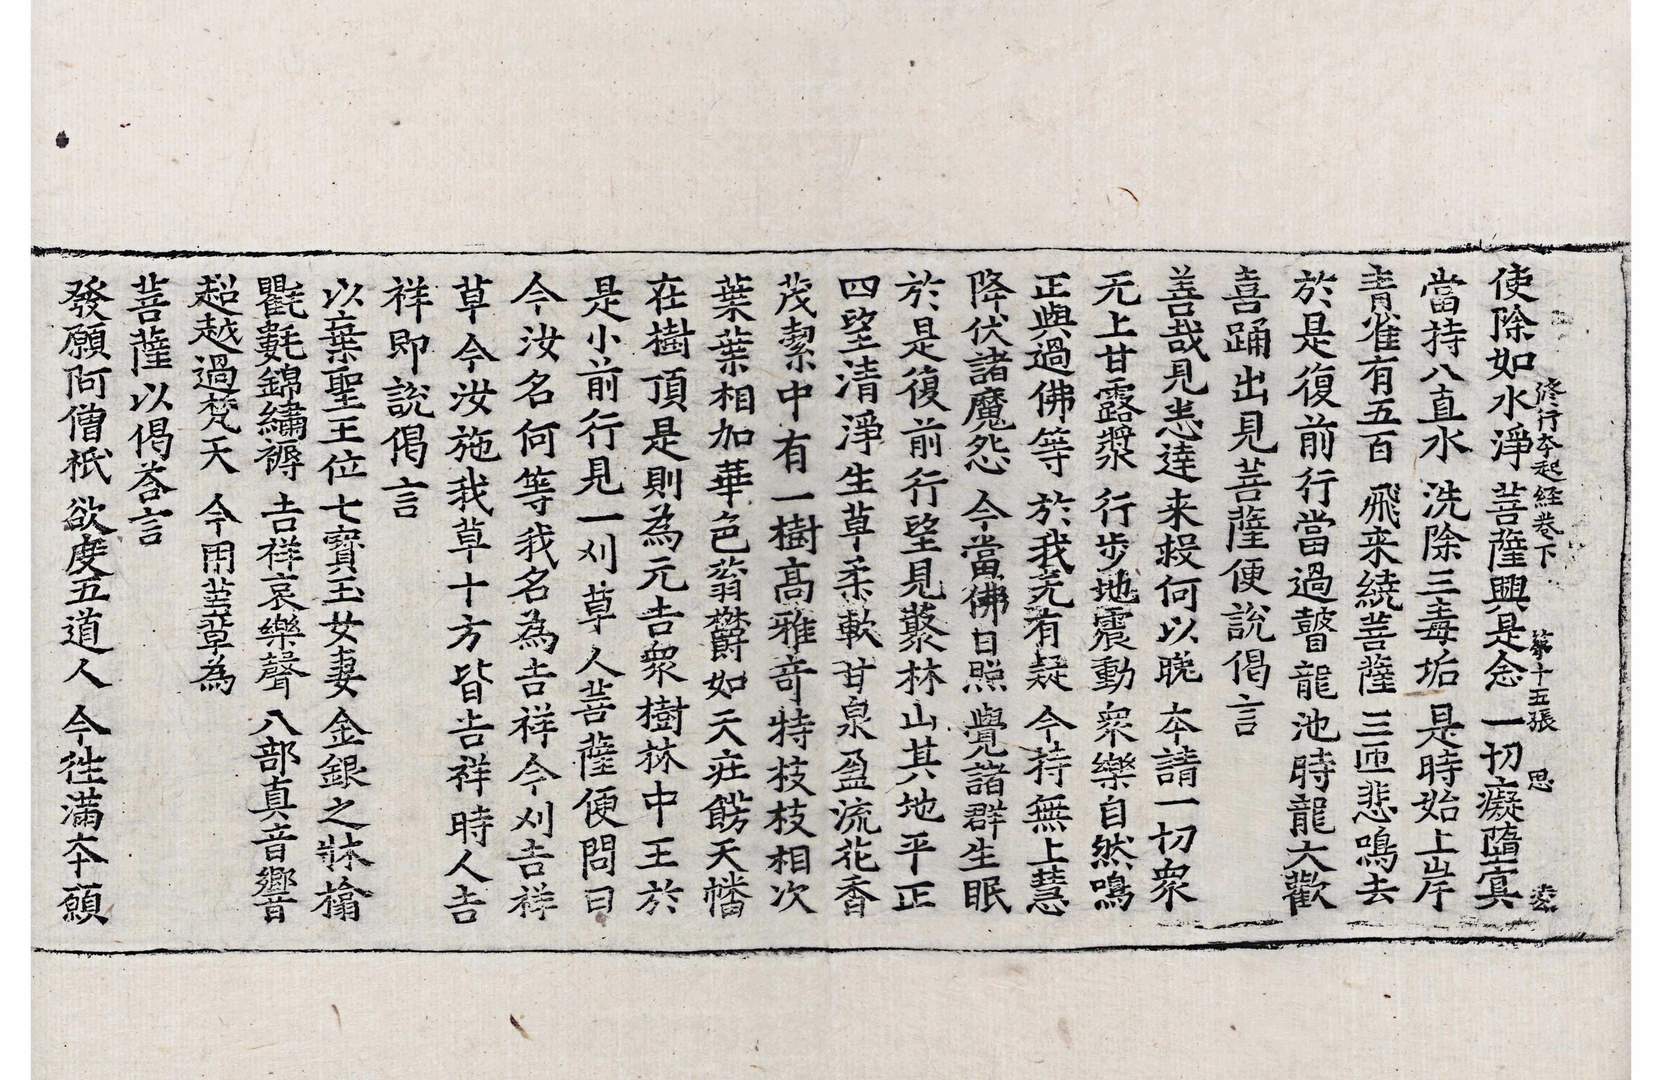 修行本起經卷下 第十五張 思
使除如水淨 菩薩興是念 一切癡墮冥
當持八直水 洗除三毒垢 是時始上岸
青雀有五百 飛来繞菩薩 三匝悲鳴去
於是復前行當過瞽龍池時龍大歡
喜踊出見菩薩便說偈言
善哉見悉達 来投何以晚 本請一切衆
无上甘露漿 行步地震動 衆樂自然鳴
正與過佛等 於我无有疑 今持無上慧
降伏諸魔怨 今當佛日照 覺諸群生眠
於是復前行望見叢林山其地平正
四望清淨生草柔軟甘泉盈流花香
茂潔中有一樹高雅奇特枝枝相次
葉葉相加華色蓊欝如天莊餝天幡
在樹頂是則為元吉衆樹林中王於
是小前行見一刈草人菩薩便問曰
今汝名何等我名為吉祥今刈吉祥
草今汝施我草十方皆吉祥時人吉
祥即說偈言
以棄聖王位 七寶玉女妻 金銀之牀榻
氍㲣錦繡褥 吉祥哀樂聲 八部真音響
超越過梵天 今用蒭草為
菩薩以偈荅言
發願阿僧祇 欲度五道人 今徃滿本願